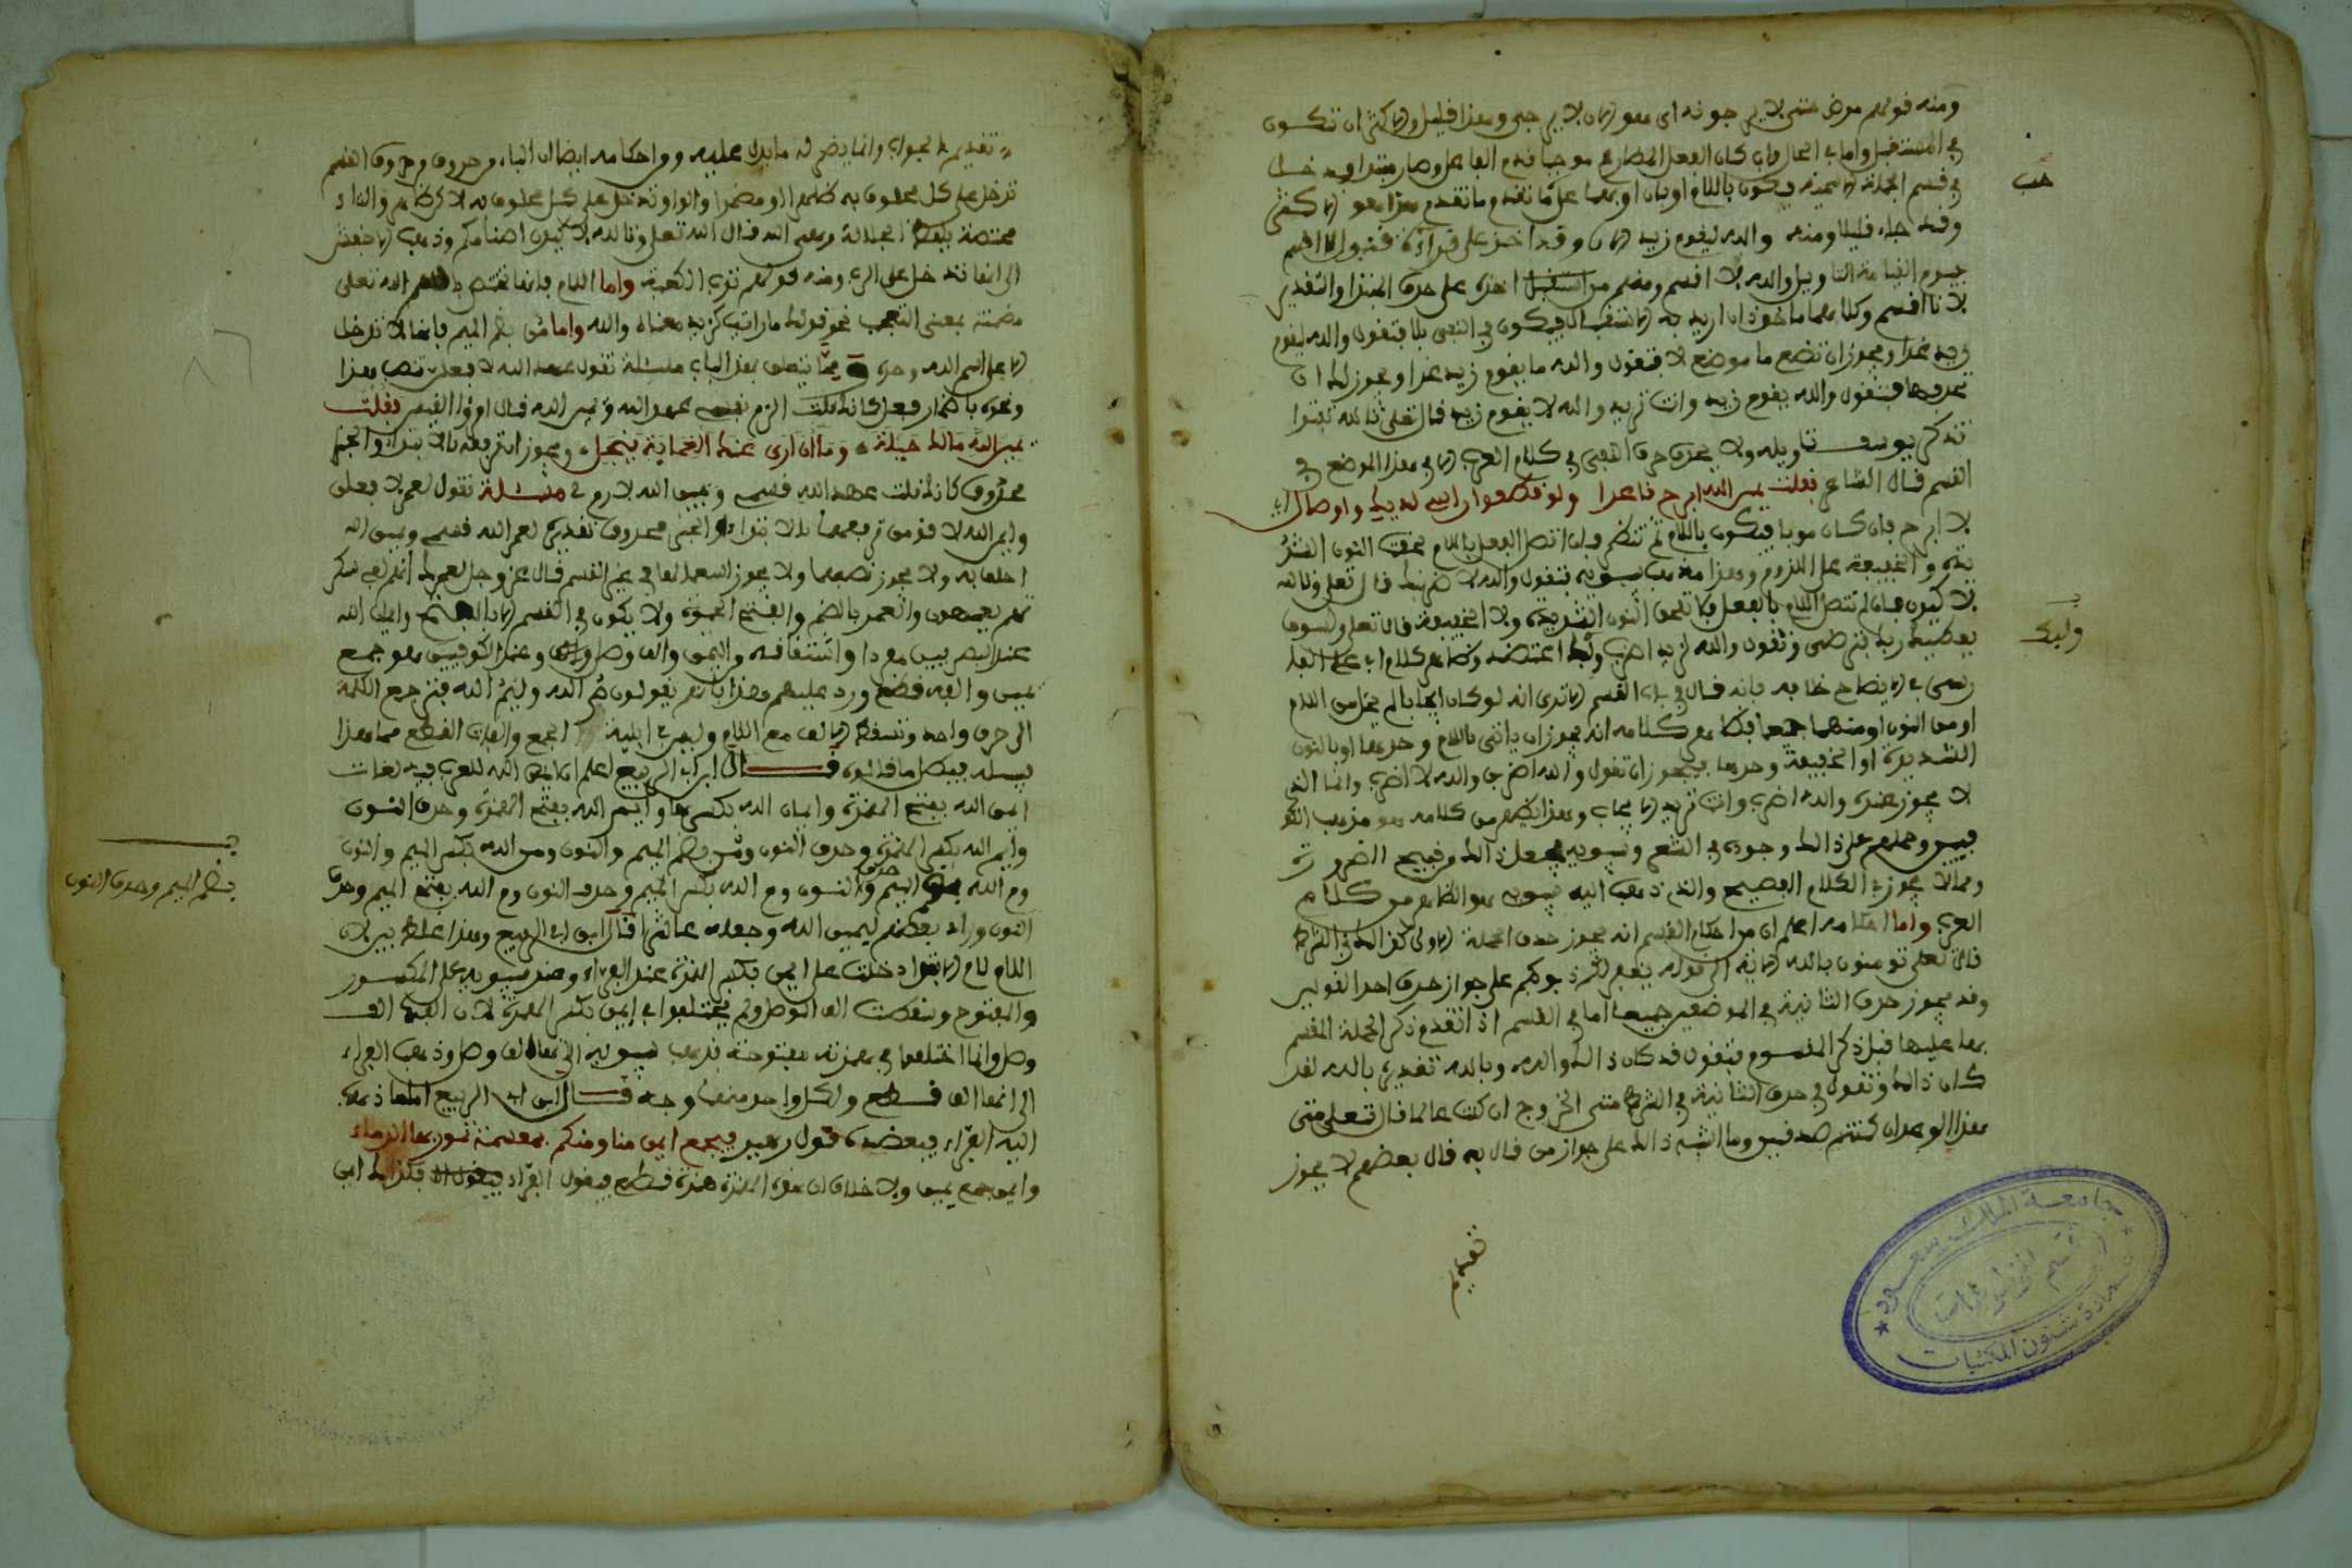 ومنه قولهم مرض حتى لا يرجونه اى هو الان لا يرجى وهذا قليل والاكثر ان تكون
في المستقبل واما في الحال فان كان الفعل المضارع موجبا قدم الفاعل وصار مبتدا
في قسم الجملة الاسمية فيكون باللام او بان او بهما على ما تقدم وما تقدم هذا هو الاكثر
وقد جاء قليلا ومنه والله ليقوم زيد الان وقد اخذ على قراءة قنبل لاقسم
بيوم القيامة التاويل والله لا اقسم ومنهم من اخذه على حذف المبتدا والتقدير
لانا اقسم وكلاهما ماخوذ ان اريد به الاستقبال فيكون في النفي بلا فتقول والله ليقوم
زيد غدا ويجوز ان تضع ما موضع لا فتقول والله ما يقوم زيد غدا ويجوز لك ان
تحذفها فتقول والله يقوم زيد وانت تريد والله لا يقوم زيد قال تعلى تالله تفتوا
تذكر يوسف تاويله ولا يحذف حرف النفي في كلام العرب الا في هذا الموضع في
القسم قال الشاعر فقلت يمين الله ابرح قاعدا ولو قطعوا راسي لديك واوصالي
لا ابرح فان كان موجبا فيكون باللام ثم تنظر فان اتصل الفعل باللام لحقت النون الشد
يدة والخفيفة على اللزوم وهذا مذهب سيبويه فتقول والله لاضربنك قال تعلى وتالله
لاكيدن فان لم تتصل اللام بالفعل فلا تلحق النون الشديدة ولا الخفيفة قال تعلى ولسوف
يعطيك ربك فترضى وتقول والله لزيد اضرب
الايضاح خلافه فانه قال في باب القسم الا ترى انه لو كان ايجابا لم يخل من اللام
او من النون او منهما جميعا فظاهر كلامه انه يجوز ان ياتي باللام وحدها او بالنون
الشديدة او الخفيفة وحدها فيجوز ان تقول والله اضربن والله لاضرب وانما الذي
لا يجوز عنده والله اضرب وانت تريد الايجاب وهذا الظاهر من كلامه هو مذهب الكو
فيين وحملهم على ذلك وجوده في الشعر وسيبويه يجعل ذلك من قبيح الضرورة
ومما لا يجوز في الكلام الفصيح والذي ذهب اليه سيبويه هو الظاهر من كلام
العرب واما احكامه اعلم ان من احكام القسم انه يجوز حذف الجملة الاولى كقولك في الشرط
قال تعلى تومنون بالله الاية الى قوله يغفر لكم ذنوبكم على جواز حذف احد القولين
وقد يجوز حذف الثانية في الموضعين جميعا اما في القسم اذا تقدم ذكر الجملة المقسم
بها عليها قبل ذكر المقسوم فتقول قد كان ذلك والله وبالله تقديره بالله لقد
كان ذلك وتقول في حذف الثانية في الشرط متى الخروج ان كنت عالما قال تعلى متى
هذا الوعد ان كنتم صدقين وما اشبه ذلك على جواز من قال به قال بعضهم لا يجوز
تقديم
تقديم الجواب وانما يضمر له ما يدل عليه ومن احكامه ايضا ان الباء من حروف القسم
تدخل على كل محلوف به ظاهرا او مضمرا والواو تدخل على كل محلوف به الا كن ظاهر والتاء
مختصة بلفظ الجلالة وهي الله قال الله تعلى وتالله لاكيدن اصنامكم وذهب الاخفش
الى انها تدخل على الرب ومنه قولهم ترب الكعبة واما اللام فانها تختص باسم الله تعلى
مضمنة بمعنى التعجب نحو قولك ما رايت كزيد معناه والله واما من بضم الميم فانها لا تدخل
الا على اسم الله وحده مما يتعلق بهذا الباب مسئلة تقول عهد الله لافعلن تنصب هذا
ونحوه باضمار فعل كانك قلت الزم نفسي عهد الله ويمين الله قال امرؤ القيس فقلت
يمين الله مالك حيلة وما ان ارى عنك الغماية تنجلي ويجوز ان ترفعه بالابتداء والخبر
محذوف كانك قلت عهد الله قسمي ويمين الله لازمي مسئلة تقول لعمرك لافعلن
وايم الله لاقومن ترفعهما بالابتداء والخبر محذوف تقديره لعمر الله قسمي ويمين الله
احلف به ولا يجوز نصبهما ولا يجوز استعمالها في غير القسم قال عز وجل لعمرك انهم لفي سكر
تهم يعمهون والعمر بالضم والفتح الحيوة ولا يكون في القسم الا بالفتح وايمن الله
عند البصريين مفردا واشتقاقه من اليمن والفه وصل وعند الكوفيين هو جمع
يمين والفه قطع ورد عليهم هذا بانهم يقولون م الله وليم الله فترجع الكلمة
الى حرف واحد وتسقط الالف مع اللام وليس في ابنية الجمع والفات القطع مما هذا
سبيله فبطل ما قالوه قال ابن ابي الربيع اعلم ان ايمن الله للعرب فيه لغات
ايمن الله بفتح الهمزة وايمن الله بكسرها وايم الله بفتح الهمزة وحذف النون
وايم الله بكسر الهمزة وحذف النون ومن بضم الميم والنون ومن الله بكسر الميم والنون
وم الله الميم وحذف النون وم الله بكسر الميم وحذف النون وم الله بفتح الميم وحذف
بضم الميم وحذف النون
النون وزاد بعضهم ليمين الله وجعله عاشرا قال ابن ابي الربيع وهذا غلط بين لان
اللام لام الابتداء دخلت على ايمن بكسر الهمزة عند الفراء وعند سيبويه على المكسور
والمفتوح وسقطت الف الوصل ولم يختلفوا في ايمن بكسر الهمزة لان الفها الف
وصل وانما اختلفوا في همزته مفتوحة فذهب سيبويه الى انها الف وصل وذهب الفراء
الى انها الف قطع ولكل واحد منهما وجه قال ابن ابي الربيع اما ما ذهب
اليه الفراء فيعضده قول زهير فيجمع ايمن منا ومنكم بمقسمة تمور بها الدماء
وايمن جمع يمين ولا خلاف ان هذه الهمزة همزة قطع فيقول الفراء فكذلك ايمن
جامعة الملك سعود
قسم المخطوطات
عمادة شئون المكتبات